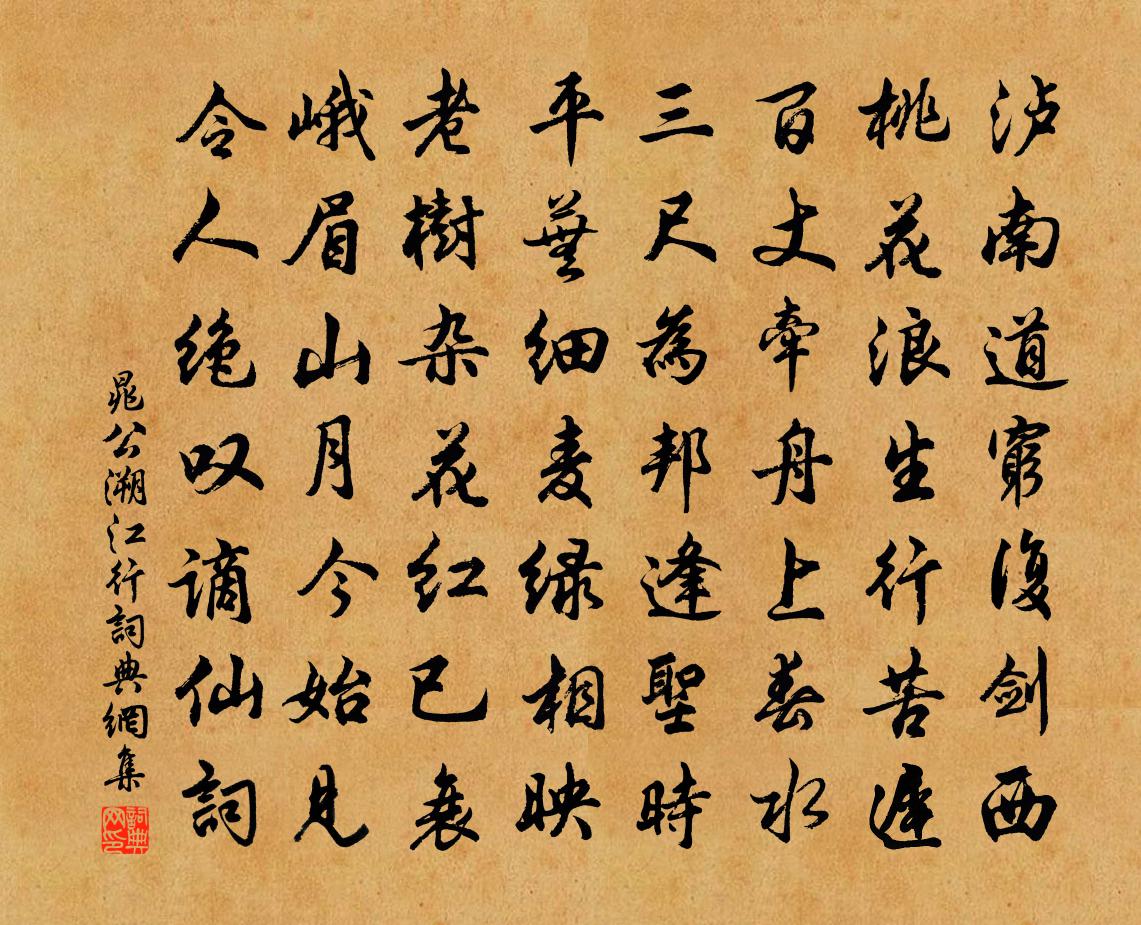 泸南道窮復剑西
桃花浪生行苦遲
百丈牵舟上春水
三尺為邦逢聖時
平蕪细麦绿相映
老樹杂花红已衰
峨眉山月今始见
令人绝叹谪仙詞
晁公溯江行詞典網集
詞典
网印